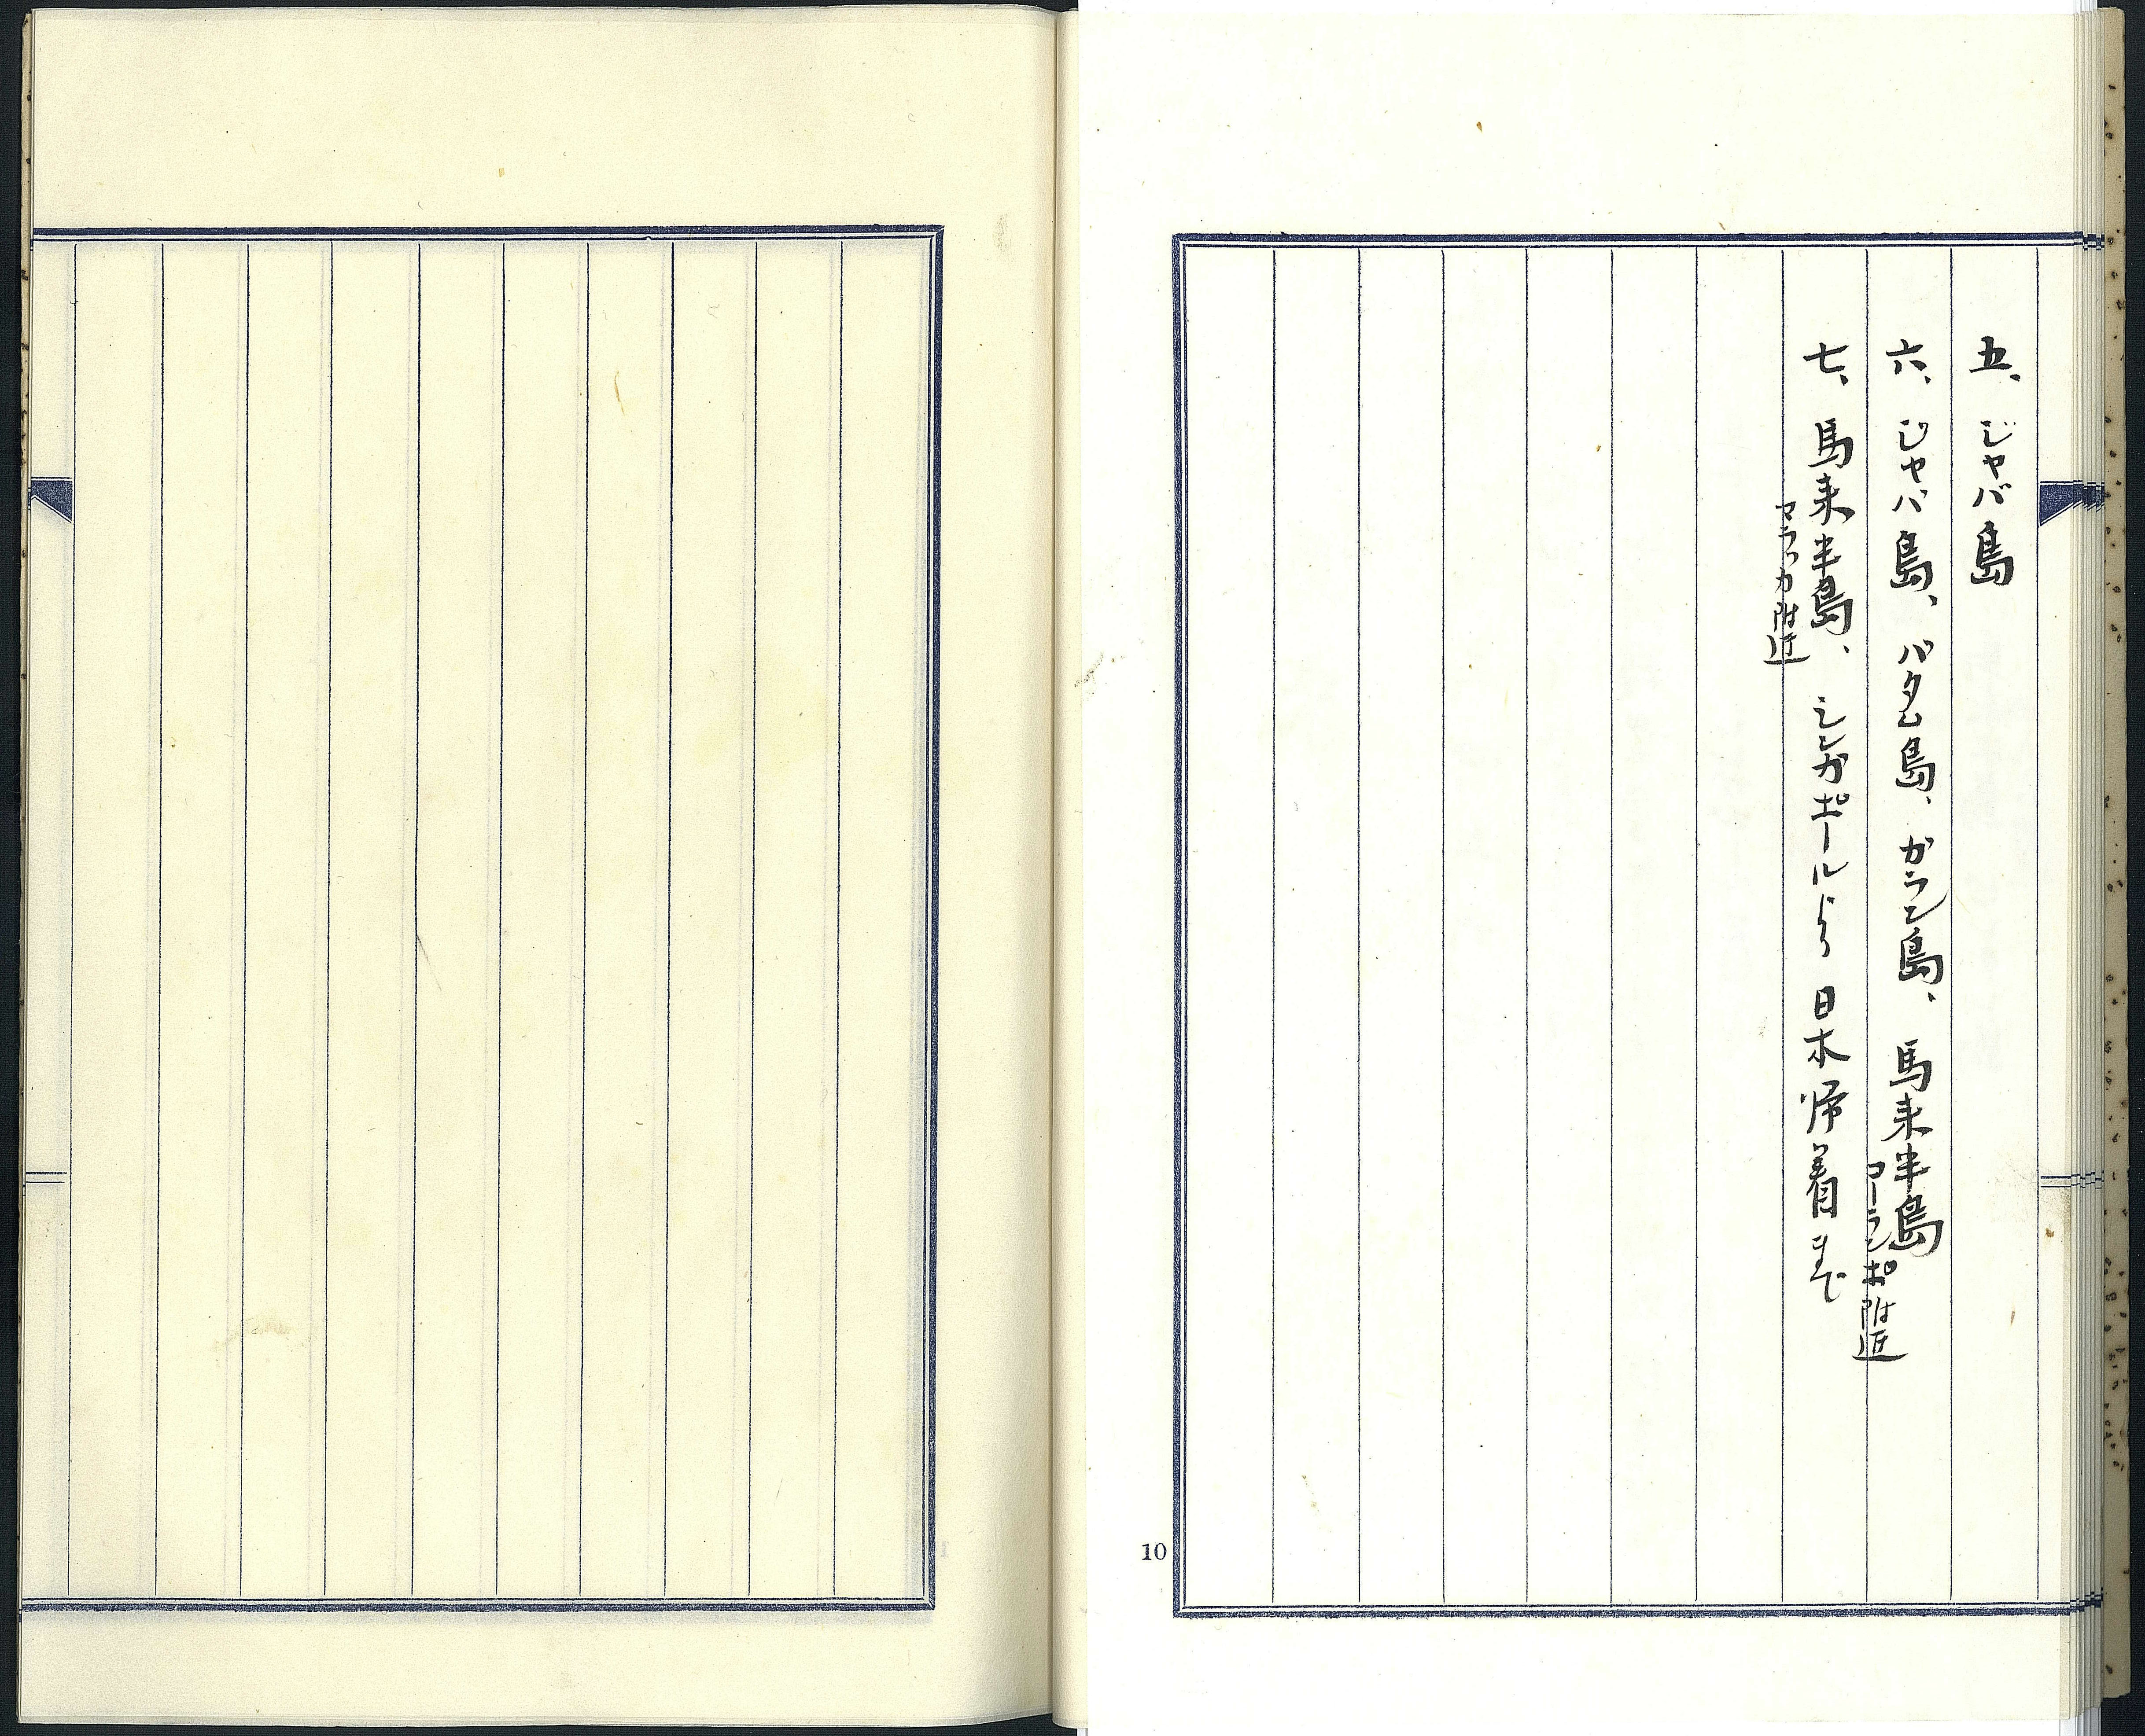 五、ジャバ島
六、ジャバ島、バタム島、ガラン島、馬来半島
コーランポ附近
七、馬来半島、シンガポールより日本帰着まで
マラッカ附近
10